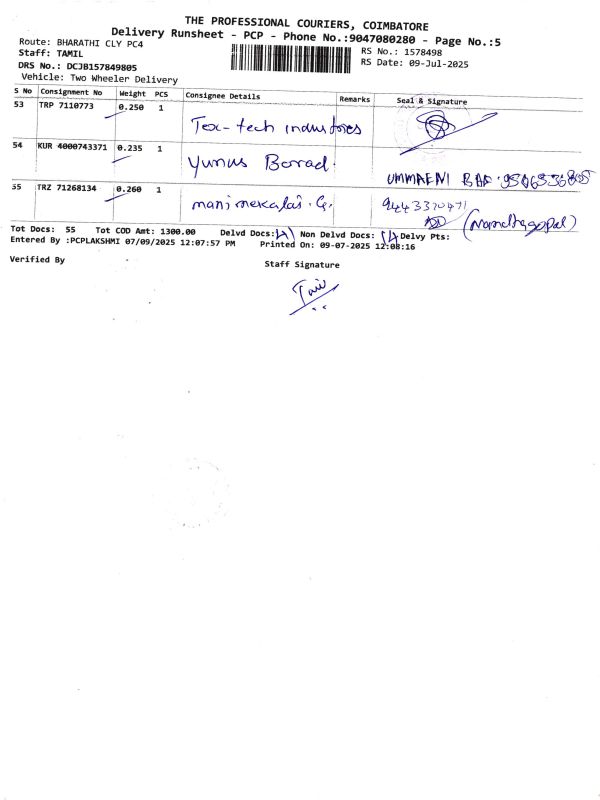 THE PROFESSIONAL COURIERS, COIMBATORE
Delivery Runsheet - PCP - Phone No.:9047080280 - Page No.:5
Route: BHARATHI CLY PC4
Staff: TAMIL
DRS No.: DCJB157849805
Vehicle: Two Wheeler Delivery
RS No.: 1578498
RS Date: 09-Jul-2025
S No Consignment No Weight PCS Consignee Details Remarks Seal & Signature
53 TRP 7110773 0.250 1 Tex-tech industries
54 KUR 4000743371 0.235 1 Yunus Borad.
55 TRZ 71268134 0.260 1 manimekalai. G. 9443370471
Tot Docs: 55 Tot COD Amt: 1300.00 Delvd Docs: 41 Non Delvd Docs: 14 Delvy Pts:
Entered By :PCPLAKSHMI 07/09/2025 12:07:57 PM Printed On: 09-07-2025 12:08:16
Verified By
Staff Signature